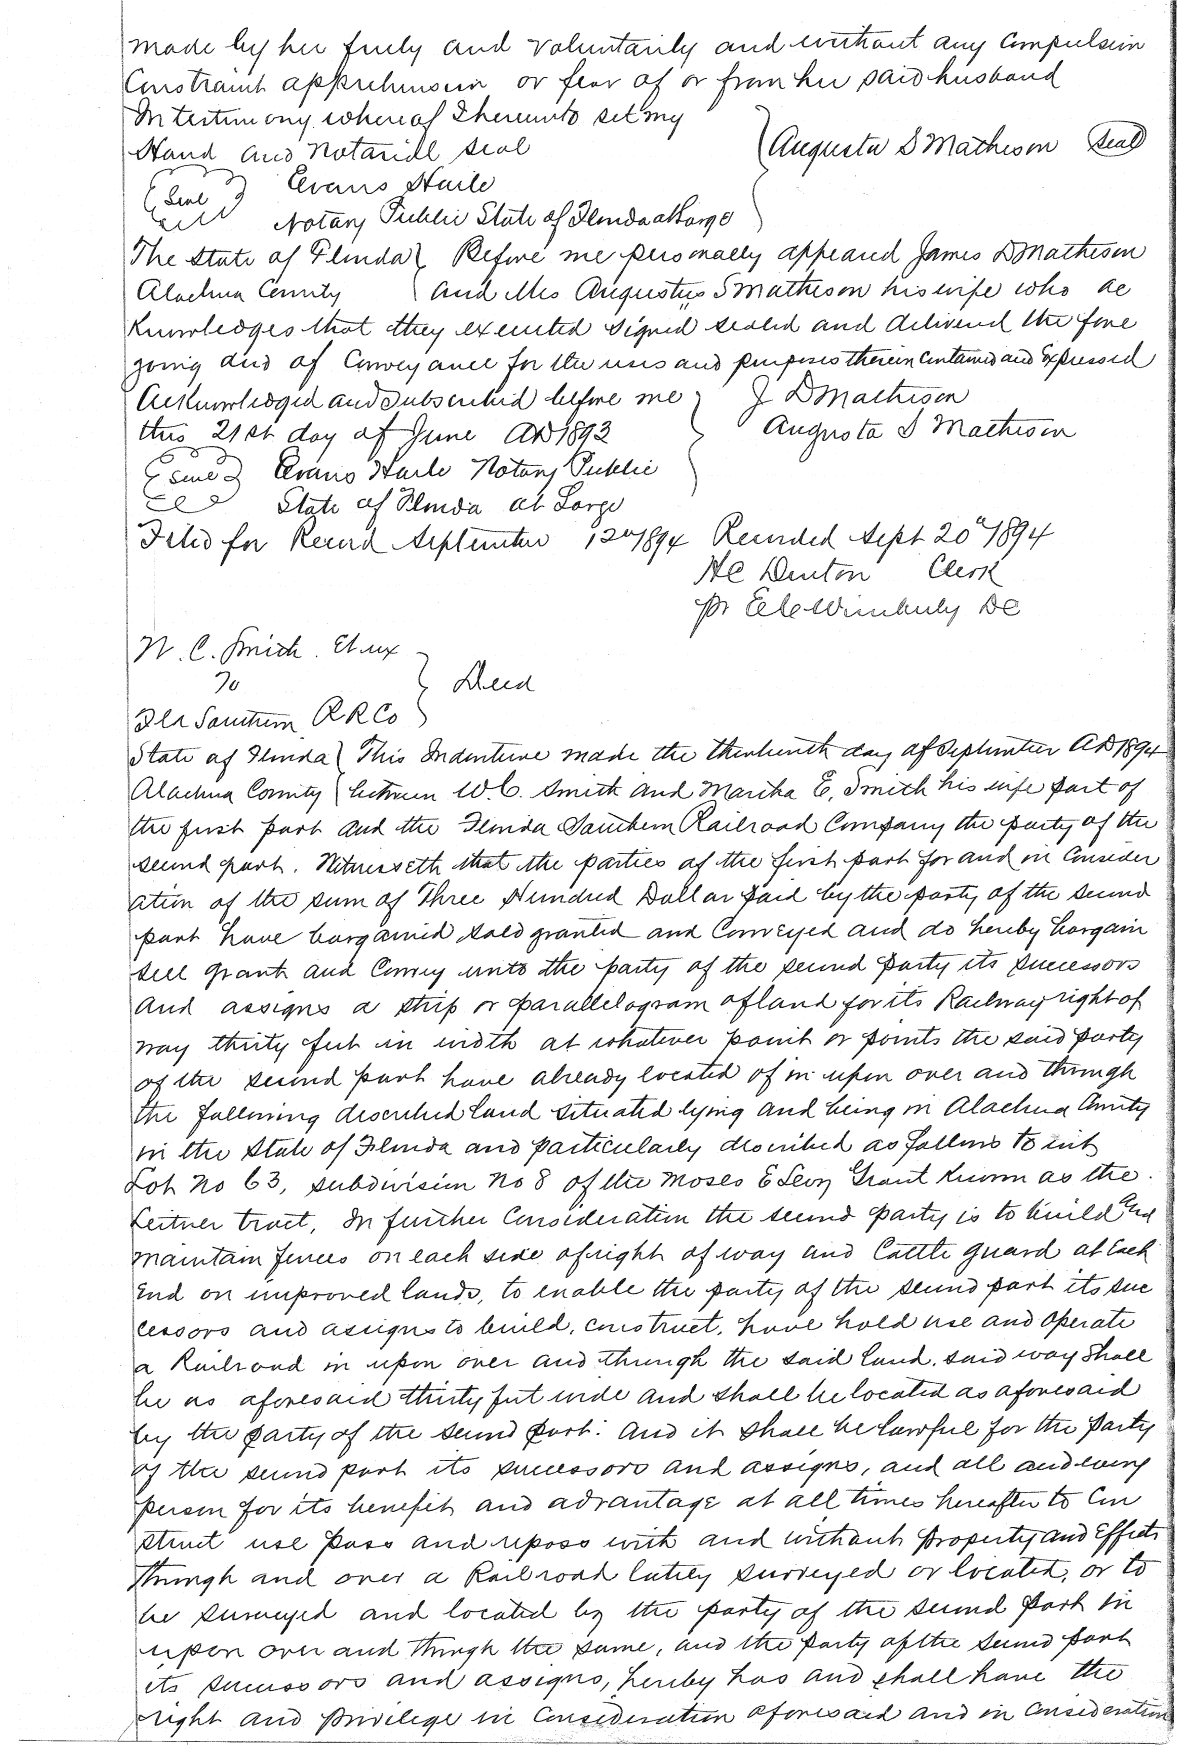 made by her freely and voluntarily and without any Compulsion
Constraint apprehension or fear of or from her said husband
In testimony whereof I hereunto set my
Hand and Notariell seal
Augusta S Matheson Seal
Seal Evans Haile
Notary Public State of Florida at Large
The State of Florida Before me personally appeared James D Matheson
Alachua County and Mrs Augustus S Matheson his wife who ac
knowledges that they executed signed sealed and delivered the fore
going deed of Conveyance for the uses and purposes therein contained and Expressed
Acknowledged and subscribed before me J D Matheson
this 21st day of June AD 1893 Augusta S Matheson
Seal Evans Haile Notary Public
State of Florida at Large
Filed for Record September 12th 1894 Recorded Sept 20th 1894
H C Denton Clerk
pr Wimberly DC
W. C. Smith. Et ux
To
Deed
Fla Southern R R Co
State of Florida This Indenture made the thirteenth day of September AD 1894
Alachua County between W. C. Smith and Martha E. Smith his wife part of
the first part and the Florida Southern Railroad Company the party of the
second part. Witnesseth that the parties of the first part for and in Consider
ation of the sum of Three Hundred Dollar paid by the party of the second
part have bargained sold granted and Conveyed and do hereby bargain
sell grant and Convey unto the party of the second party its successors
and assigns a strip or parallelogram of land for its Railway right of
way thirty feet in width at whatever point or points the said party
of the second part have already located of in upon over and through
the following described land situated lying and being in Alachua County
in the State of Florida and particularly described as follows to wit
Lot No 63, subdivision No 8 of the Moses E Levy Grant known as the
Leitner tract, In further Consideration the second party is to build and
maintain fences on each side of right of way and Cattle guard at Each
End on improved lands, to enable the party of the second part its suc
cessors and assigns to build, construct, have hold use and operate
a Railroad in upon over and through the said land. said way shall
be as aforesaid thirty feet wide and shall be located as aforesaid
by the party of the second part. And it shall be lawful for the party
of the second part its successors and assigns, and all and every
person for its benefit and advantage at all times hereafter to Con
struct use pass and repass with and without property and Effects
through and over a Railroad lately surveyed or located, or to
be surveyed and located by the party of the second part in
upon over and through the same, and the party of the second part
its successors and assigns, hereby has and shall have the
right and privilege in Consideration aforesaid and in consideration